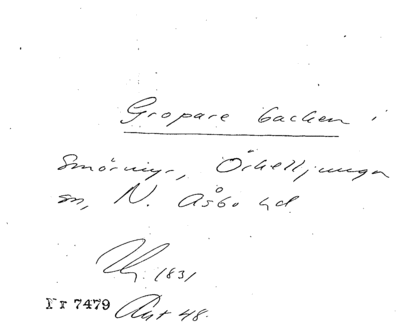 Gropare backen i
Smörmyr, Örkelljunga
sn, N. Åsbo hd.
1831
Nr 7479 Ant 48.